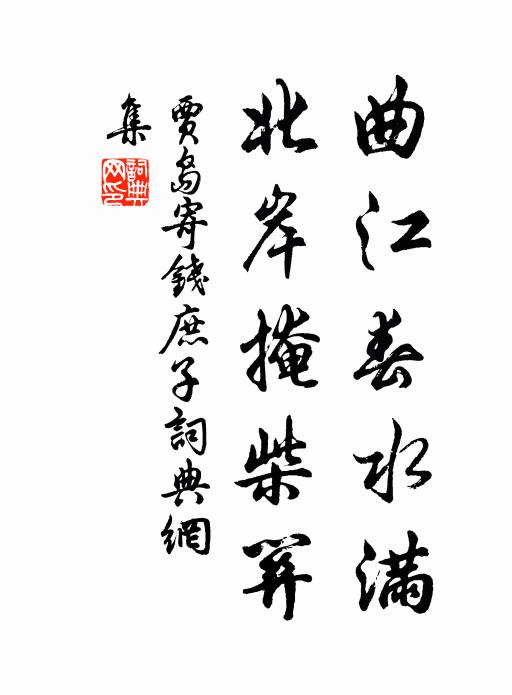 曲江春水滿
北岸掩柴關
賈島寄錢庶子詞典網
集
詞典網印